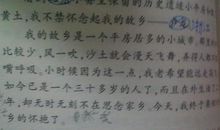 黄土,我不禁怀念起我的故乡
我的故乡是一个平房居多的小城市,那里
比较少,风一吹,沙土就会漫天飞舞,弄得人都
嘴呼吸。小时候因为这一点,我老希望能远走
如今已是一个三十多岁的人了,而且在外生活
年,却无时无刻不在思念家乡。今天,我终于
乡的怀抱了。